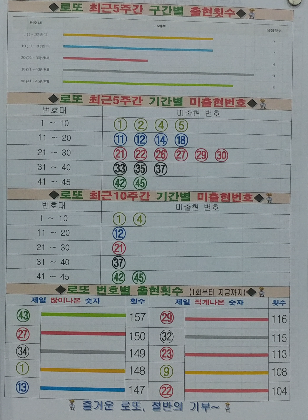 ◆로또 최근5주간 구간별 출현횟수◆
◆로또 최근5주간 기간별 미출현번호◆
번호대 미출현 번호
1 ~ 10 1 2 4 5
11 ~ 20 11 12 14 18
21 ~ 30 21 22 26 27 29 30
31 ~ 40 33 35 37
41 ~ 45 42 45
◆로또 최근10주간 기간별 미출현번호◆
번호대 미출현 번호
1 ~ 10 1 4
11 ~ 20 12
21 ~ 30 21
31 ~ 40 37
41 ~ 45 42 45
◆로또 번호별 출현횟수 (1회부터 지금까지)◆
제일 많이나온 숫자 횟수 제일 적게나온 숫자 횟수
43 157 29 116
27 150 32 115
34 149 23 113
1 148 9 108
13 147 22 104
즐거운 로또, 절반의 기부~